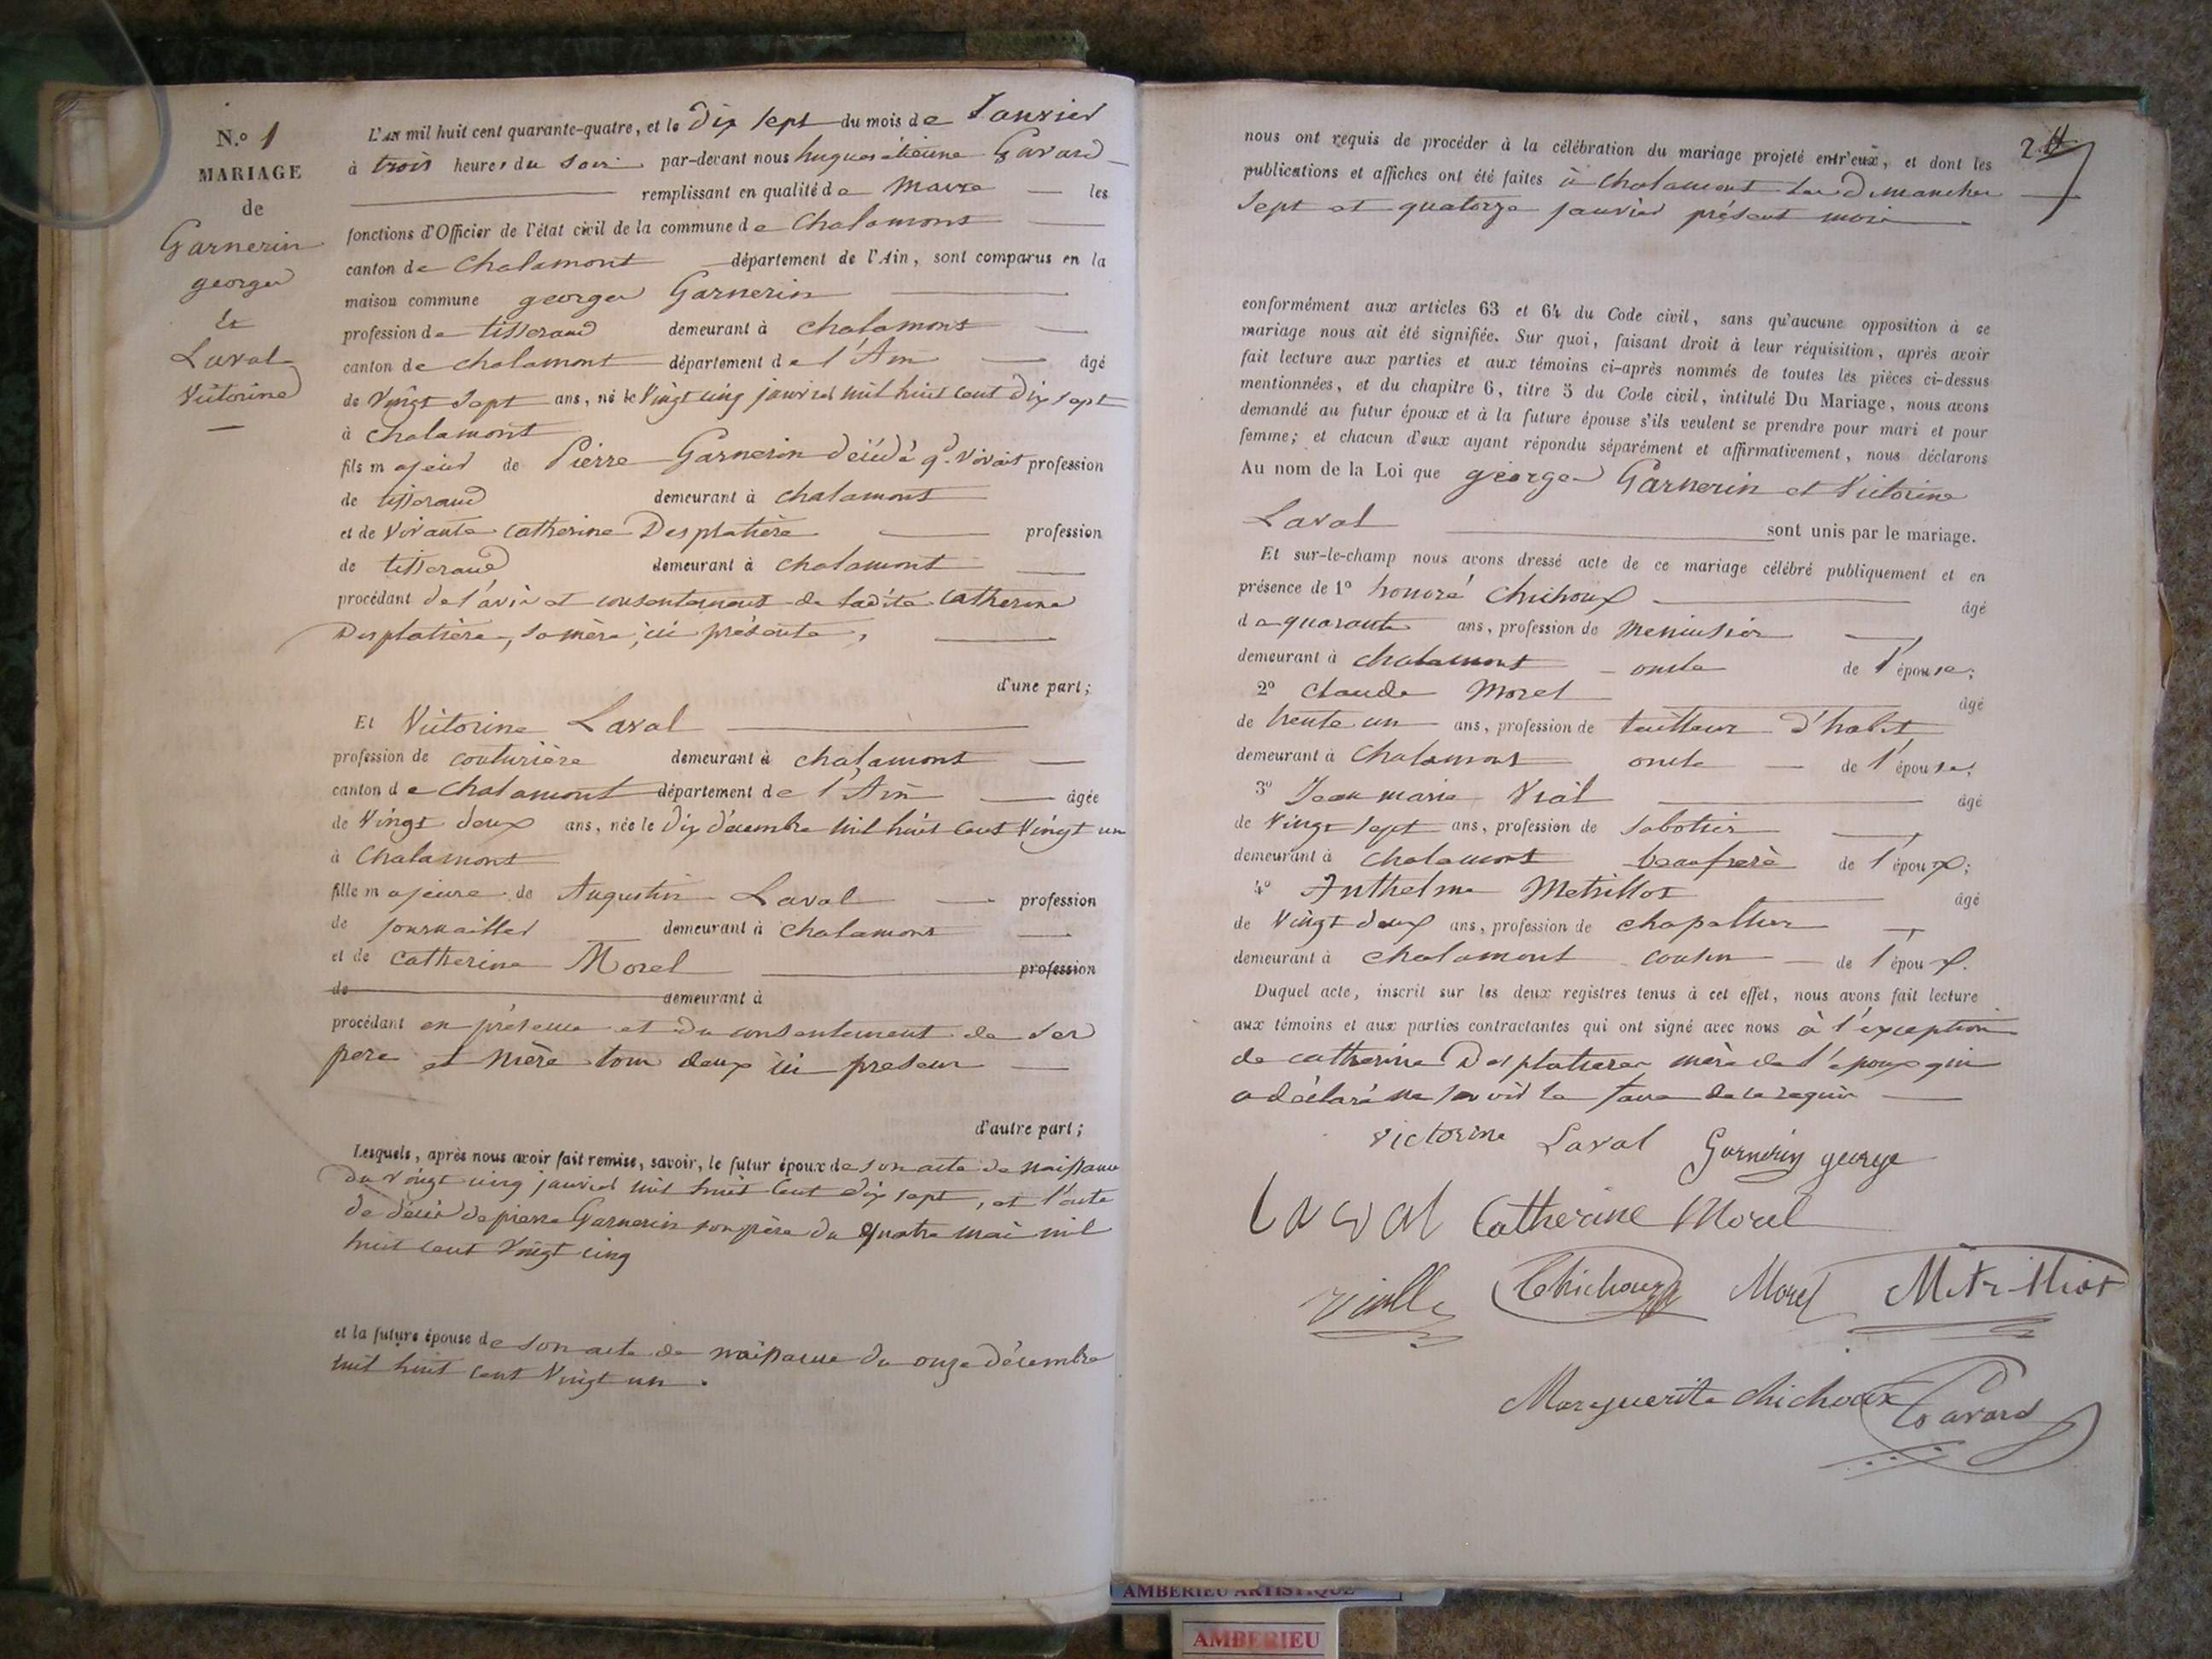 N.o 1
MARIAGE
de
Garnerin
george
Et
Laval
Victorine
L'AN mil huit cent quarante-quatre, et le Dix sept du mois de Janvier
à trois heures du soir par-devant nous hugues étienne Gavard
remplissant en qualité de Maire les
fonctions d'Officier de l'état civil de la commune de Chalamont
canton de Chalamont département de l'Ain, sont comparus en la
maison commune george Garnerin
profession de tisserand demeurant à Chalamont
canton de chalamont département de l'Ain âgé
de Vingt Sept ans, né le Vingt cinq janvier mil huit cent Dix sept
à Chalamont
fils majeur de Pierre Garnerin décédé qd. vivait profession
de tisserand demeurant à chalamont
et de Vivante Catherine Desplatière profession
de tisserand demeurant à Chalamont
procédant de l'avis et consentement de ladite Catherine
Desplatière, sa mère, ici présente,
d'une part;
Et Victorine Laval
profession de couturière demeurant à chalamont
canton de Chalamont département de l'Ain âgée
de Vingt deux ans, née le Dix décembre mil huit cent Vingt un
à Chalamont
fille majeure de Augustin Laval profession
de journaillier demeurant à Chalamont
et de Catherine Morel profession
de demeurant à
procédant en présence et du consentement de ses
pere et Mère tous deux ici présens
d'autre part;
Lesquels, après nous avoir fait remise, savoir, le futur époux de son acte de naissance
du Vingt cinq janvier mil huit cent dix sept, et l'acte
de décès de pierre Garnerin son père du quatre mai mil
huit cent vingt cinq
et la future épouse de son acte de naissance du onze décembre
mil huit cent Vingt un.
2
nous ont requis de procéder à la célébration du mariage projeté entr'eux, et dont les
publications et affiches ont été faites à Chalamont les Dimanches
Sept et quatorze janvier présent mois
conformément aux articles 63 et 64 du Code civil, sans qu'aucune opposition à ce
mariage nous ait été signifiée. Sur quoi, faisant droit à leur réquisition, après avoir
fait lecture aux parties et aux témoins ci-après nommés de toutes les pièces ci-dessus
mentionnées, et du chapitre 6, titre 5 du Code civil, intitulé Du Mariage, nous avons
demandé au futur époux et à la future épouse s'ils veulent se prendre pour mari et pour
femme; et chacun d'eux ayant répondu séparément et affirmativement, nous déclarons
Au nom de la Loi que george Garnerin et Victorine
Laval sont unis par le mariage.
Et sur-le-champ nous avons dressé acte de ce mariage célébré publiquement et en
présence de 1º honoré Chichoux âgé
de quarante ans, profession de Menuisier
demeurant à chalamont oncle de l'épouse;
2º Claude Morel âgé
de trente un ans, profession de tailleur d'habit
demeurant à Chalamont oncle de l'épouse;
3º Jean marie Vial âgé
de Vingt sept ans, profession de sabotier
demeurant à Chalamont beaufrère de l'époux;
4º Anthelme Metrillot âgé
de Vingt deux ans, profession de chapellier
demeurant à Chalamont cousin de l'époux.
Duquel acte, inscrit sur les deux registres tenus à cet effet, nous avons fait lecture
aux témoins et aux parties contractantes qui ont signé avec nous à l'exception
de catherine Desplatieres mère de l'époux qui
a déclaré ne savoir le faire de ce requis
victorine Laval Garnerin george
Laval Catherine Morel
Chichoux Morel Metrilliot
Marguerite chichoux Gavard
AMBERIEU ARTISTIQUE
AMBERIEU